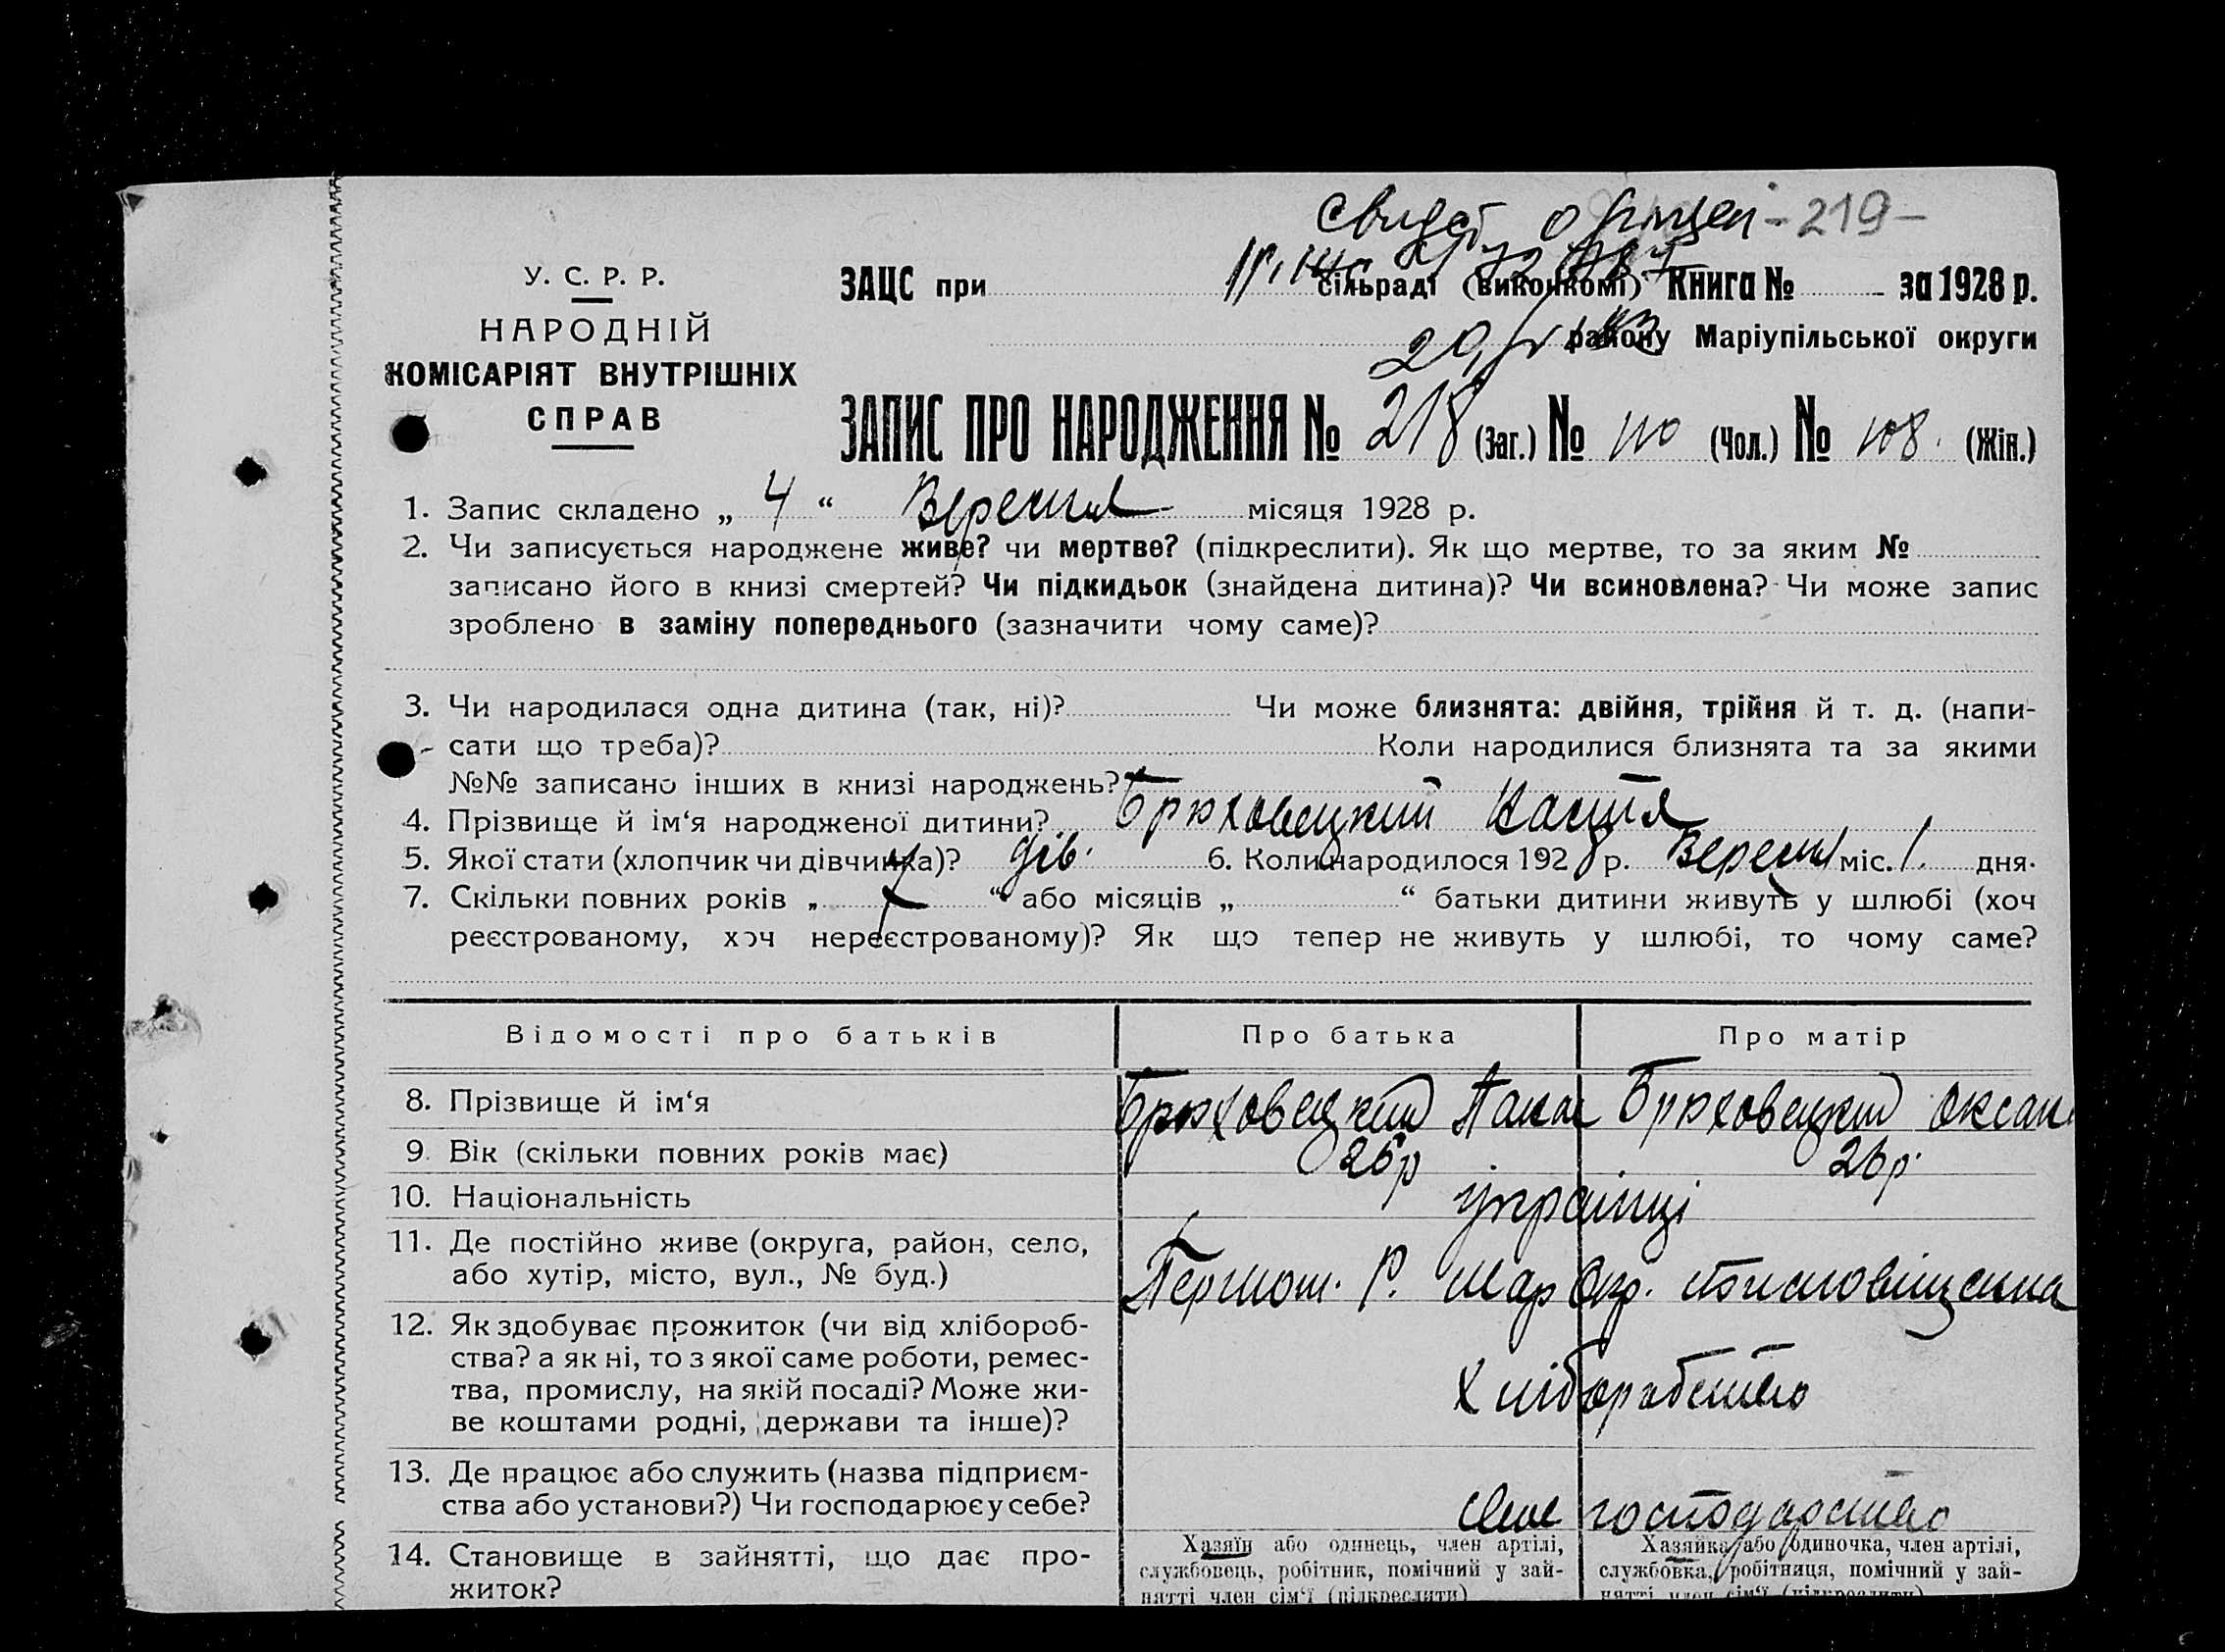 -219-
У. С. Р. Р.
НАРОДНІЙ
КОМІСАРІЯТ ВНУТРІШНІХ
СПРАВ
ЗАЦС при сільраді (виконкомі) Книга № за 1928 р.
району Маріупільської округи
ЗАПИС ПРО НАРОДЖЕННЯ № 218 (Заг.) № 110 (Чол.) № 108. (Жін.)
1. Запис складено „ 4 “ Вересня місяця 1928 р.
2. Чи записується народжене живе? чи мертве? (підкреслити). Як що мертве, то за яким №
записано його в книзі смертей? Чи підкидьок (знайдена дитина)? Чи всиновлена? Чи може запис
зроблено в заміну попереднього (зазначити чому саме)?
3. Чи народилася одна дитина (так, ні)? Чи може близнята: двійня, трійня й т. д. (напи-
сати що треба)? Коли народилися близнята та за якими
№№ записано інших в книзі народжень?
4. Прізвище й ім‘я народженої дитини? Брюховецкий
5. Якої стати (хлопчик чи дівчинка)? дів. 6. Коли народилося 1928 р. Вересня міс. 1. дня.
7. Скільки повних років „ “ або місяців „ “ батьки дитини живуть у шлюбі (хоч
реєстрованому, хоч нереєстрованому)? Як що тепер не живуть у шлюбі, то чому саме?
Відомості про батьків Про батька Про матір
8. Прізвище й ім‘я Брюховецкий Брюховецкий Оксан
9. Вік (скільки повних років має) 26р 26р.
10. Національність українці
11. Де постійно живе (округа, район, село,
або хутір, місто, вул., № буд.) Р. Мар Окр.
12. Як здобуває прожиток (чи від хлібороб-
ства? а як ні, то з якої саме роботи, ремес-
тва, промислу, на якій посаді? Може жи-
ве коштами родні, держави та інше)? Хліборобство
13. Де працює або служить (назва підприєм-
ства або установи?) Чи господарює у себе? своє господарство
14. Становище в зайнятті, що дає про-
житок?
Хазяїн або одинець, член артілі,
службовець, робітник, помічний у зай-
нятті член сім‘ї (підкреслити)
Хазяйка або одиночка, член артілі,
службовка, робітниця, помічний у зай-
нятті член сім‘ї (підкреслити)